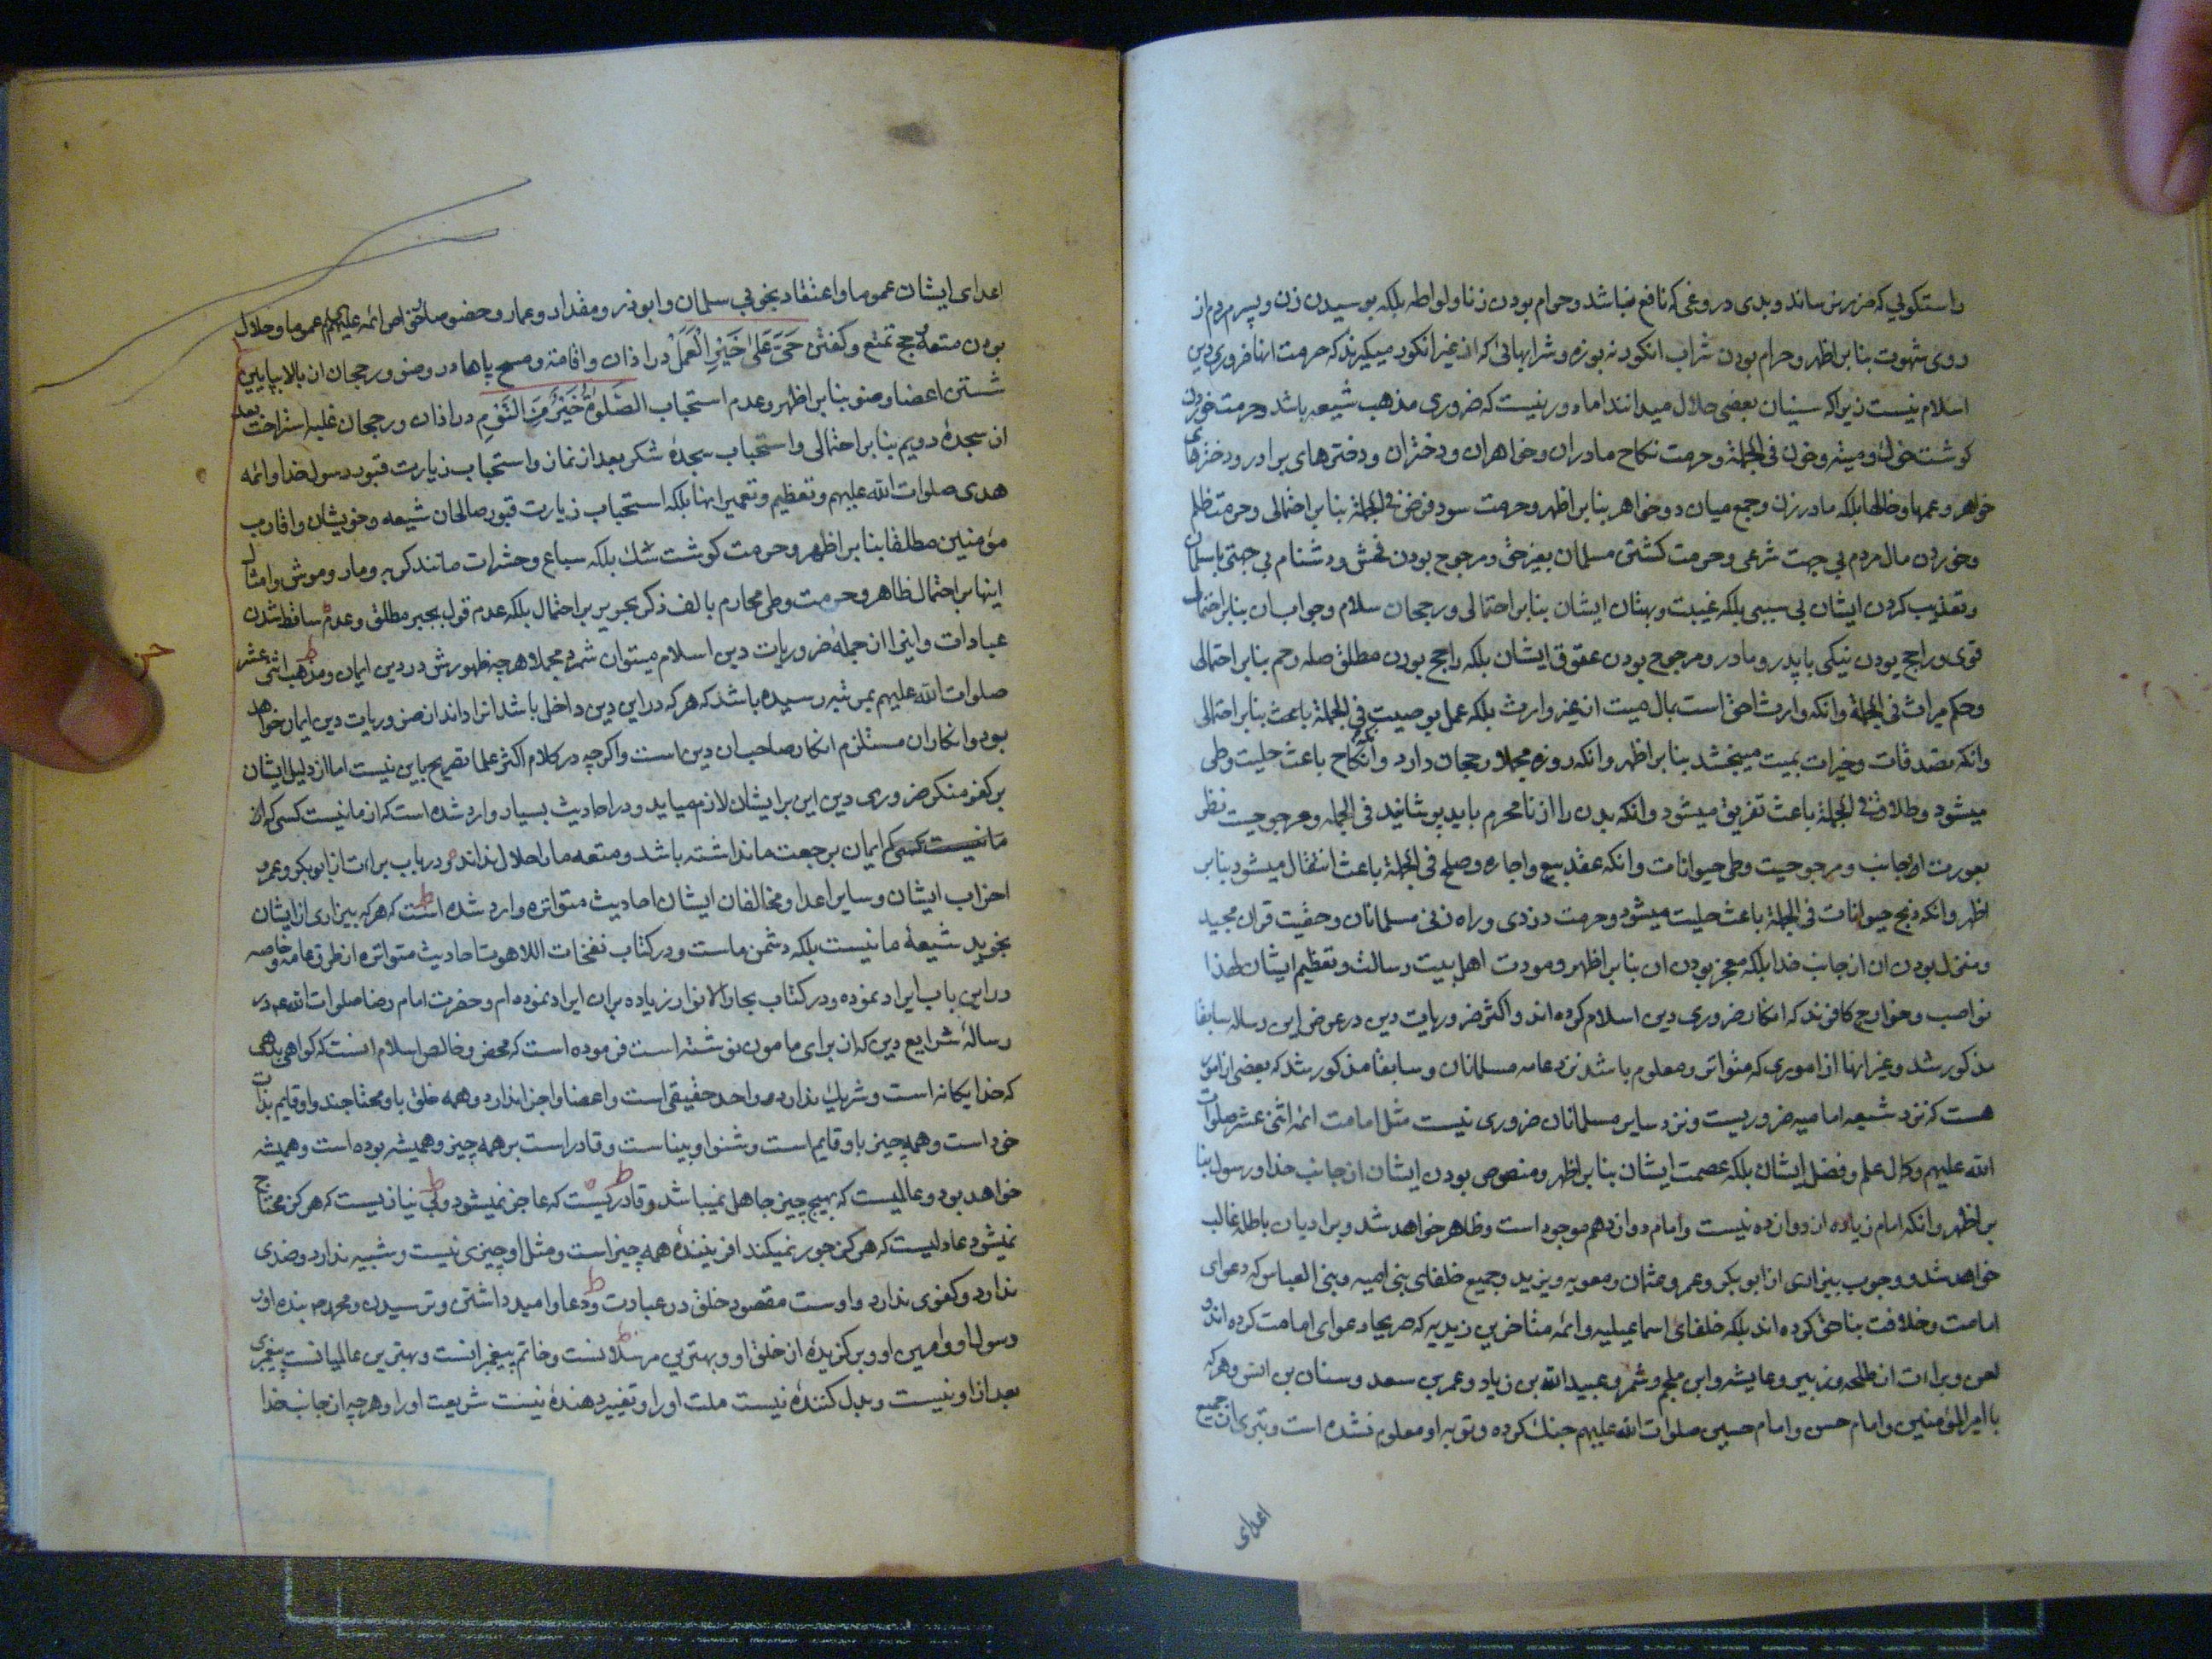 راستکویی که ضرر نرساند و بدی دروغی که نافع نباشد و حرام بودن زنا و لواطه بلکه بوسیدن زن و پسر مردم از
روی شهوت بنابر اظهر و حرام بودن شراب انکور نه بوزه و شرابهائی که از غیر انکور میکیرند که حرمت انها ضروری دین
اسلام نیست زیرا که سنیان بعضی حلال میدانند اما دور نیست که ضروری مذهب شیعه باشد و حرمت خوردن
کوشت خوک و میته و خون فی الجملة و حرمت نکاح مادران و خواهران و دختران و دخترهای برادر و دخترهای
خواهر و عمها و خالها بلکه مادر زن و جمع میان دو خواهر بنابر اظهر و حرمت سود قرض فی الجملة بنابر احتمالی و حرمت ظلم
و خوردن مال مردم بی جهت شرعی و حرمت کشتن مسلمان بغیر حق و مرجوح بودن فحش و دشنام بی جهتی با مسلمان
و تعذیب کردن ایشان بی سببی بلکه غیبت و بهتان ایشان بنابر احتمالی و رجحان سلام و جواب ان بنابر احتمال
قوی و راجح بودن نیکی با پدر و مادر و مرجوح بودن عقوق ایشان بلکه راجح بودن مطلق صله رحم بنابر احتمالی
و حکم میراث فی الجملة و انکه وارث احق است بمال میت از غیر وارث بلکه عمل بوصیت فی الجملة باعث بنابر احتمالی
و انکه تصدقات و خیرات بمیت میبخشد بنابر اظهر و انکه روزه مجملا رجحان دارد و انکه نکاح باعث حلیت وطی
میشود و طلاق فی الجملة باعث تفریق میشود و انکه بدن را از نامحرم باید پوشانید فی الجمله و مرجوحیت نظر
بعورت اجانب و مرجوحیت وطی حیوانات و انکه عقد بیع و اجاره و صلح فی الجملة باعث انتقال میشود بنابر
اظهر و انکه ذبح حیوانات فی الجملة باعث حلیت میشود و حرمت دزدی و راه زنی مسلمانان و حقیت قران مجید
و منزل بودن ان از جانب خدا بلکه معجز بودن ان بنابر اظهر و مودت اهل بیت رسالت و تعظیم ایشان لهذا
نواصب و خوارج کافرند که انکار ضروری دین اسلام کرده اند و اکثر ضروریات دین در عرض این رساله سابقا
مذکور شد و غیر انها از اموری که متواتر و معلوم باشد نزد عامه مسلمانان و سابقا مذکور شد که بعضی از امور
هست که نزد شیعه امامیه ضروریست و نزد سایر مسلمانان ضروری نیست مثل امامت ائمه اثنی عشر صلوات
الله علیهم و کمال علم و فضل ایشان بلکه عصمت ایشان بنابر اظهر و منصوص بودن ایشان از جانب خدا و رسول بنا
بر اظهر و انکه امام زیاده از دوازده نیست و امام دوازدهم موجود است و ظاهر خواهد شد و بر ادیان باطله غالب
خواهد شد و وجوب بیزاری از ابوبکر و عمر و عثمان و معویه و یزید و جمیع خلفای بنی امیه و بنی العباس که دعوای
امامت و خلافت بناحق کرده اند بلکه خلفای اسماعیلیه و ائمه متاخرین زیدیه که صریحا دعوای امامت کرده اند و
لعن و براءت از طلحه و زبیر و عایشه و ابن ملجم و شمر و عبید الله بن زیاد و عمر بن سعد و سنان بن انس و هر که
با امیر المؤمنین و امام حسن و امام حسین صلوات الله علیهم جنك کرده و توبه او معلوم نشده است و تبری از جمیع
اعدای
اعدای ایشان عموما و اعتقاد بخوبی سلمان و ابوذر و مقداد و عمار و خصوصا خواص ائمه علیهم عموما و حلال
بودن متعه و حج تمتع و کفتن حَیَّ عَلیٰ خَیْرِ الْعَمَلْ در اذان و اقامة و مسح پاها در وضو و رجحان ان بالا بپایین
شستن اعضا وضو بنابر اظهر و عدم استحباب الصَّلوٰةُ خَیْرٌ مِّنَ النَّوْمِ در اذان و رجحان جلسه استراحت بعد
از سجدهٔ دویم بنابر احتمالی و استحباب سجدهٔ شکر بعد از نماز و استحباب زیارت قبور رسول خدا و ائمه
هدی صلوات الله علیهم و تعظیم و تعمیر انها بلکه استحباب زیارت قبور صالحان شیعه و خویشان و اقارب
مؤمنین مطلقا بنابر اظهر و حرمت کوشت سك بلکه سباع و حشرات مانند کربه و مار و موش و امثال
اینها بر احتمال ظاهر و حرمت وطی محارم بالف ذکر بحریر بر احتمال بلکه عدم قول بجبر مطلق و عدم ساقط شدن
عبادات و اینها از جملهٔ ضروریات دین اسلام میتوان شمرد مجملا هر چه ظهورش در دین ایمان و مذهب اثنی عشر
صلوات الله علیهم بمرتبه رسیده باشد که هر که در این دین داخل باشد انرا داند از ضروریات دین ایمان خواهد
بود و انکار ان مستلزم انکار صاحب ان دین است و اکر چه در کلام اکثر علما تصریح باین نیست اما از دلیل ایشان
بر کفر منکر ضروری دین این بر ایشان لازم میاید و در احادیث بسیار وارد شده است که از ما نیست کسی که از
ما نیست کسی که ایمان برجعت ما نداشته باشد و متعه ما را حلال نداند و در باب براءت از ابوبکر و عمر و
احزاب ایشان و سایر اعدا و مخالفان ایشان احادیث متواتره وارد شده است که هر که بیزاری از ایشان
بخوید شیعهٔ ما نیست بلکه دشمن ماست و در کتاب نفخات اللاهوت احادیث متواتره از طرق عامه و خاصه
در این باب ایراد نموده و در کتاب بحار الانوار زیاده بر ان ایراد نموده ام و حضرت امام رضا صلوات الله علیه در
رسالهٔ شرایع دین که ان برای مامون نوشته است فرموده است که محض و خالص اسلام انست که کواهی بدهی
که خدا یکانه است و شریك ندارد و واحد حقیقی است و اعضا و اجزا ندارد و همه خلق باو محتاجند و او قایم بذات
خود است و همه چیز باو قایم است و شنوا و بیناست و قادر است بر همه چیز و همیشه بوده است و همیشه
خواهد بود و عالمیست که بهیچ چیز جاهل نمیباشد و قادریست که عاجز نمیشود و بی نیازیست که هرکز محتاج
نمیشود عادلیست که هرکز جور نمیکند افرینندهٔ همه چیز است و مثل او چیزی نیست و شبیه ندارد و ضدی
ندارد و کفوی ندارد و اوست مقصود خلق در عبادت و دعا و امید داشتن و ترسیدن و محمد بنده او و
رسول او و امین او و برکزیدهٔ از خلق او و بهترین مرسلانست و خاتم پیغمبرانست و بهترین عالمیانست پیغمبری
بعد از او نیست و بدل کنندهٔ نیست ملت او را و تغییر دهندهٔ نیست شریعت او را و هر چه از جانب خدا